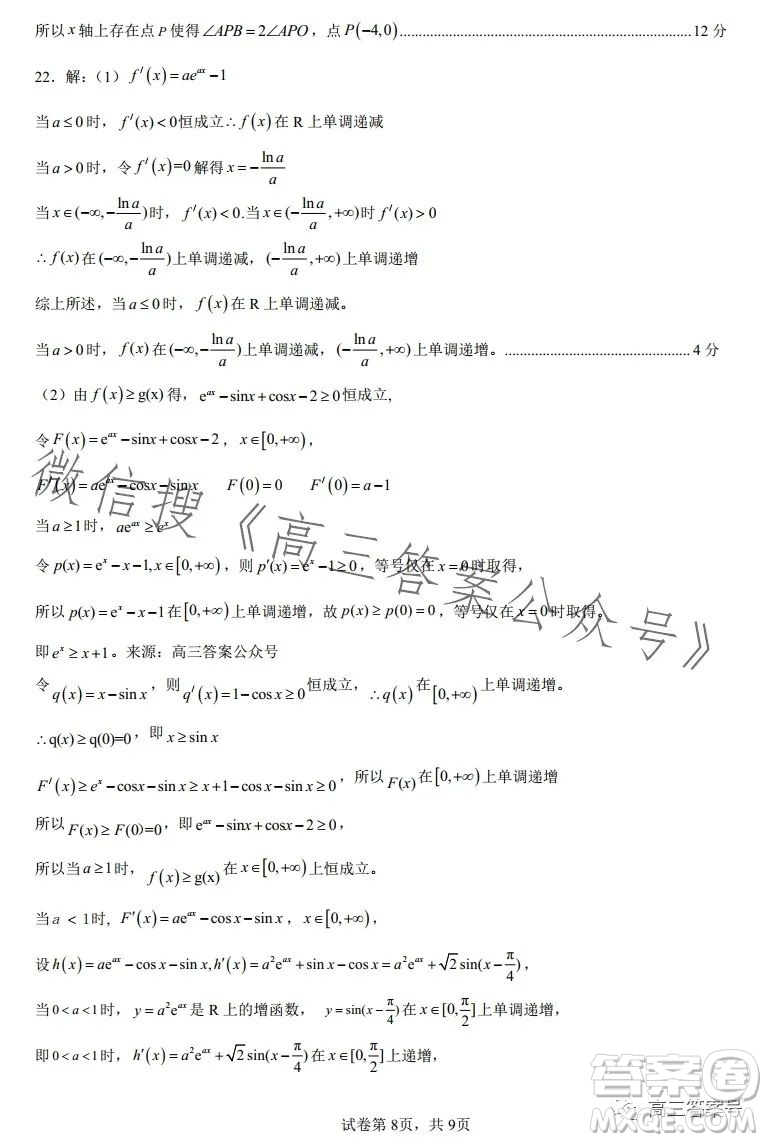 所以 x 轴上存在点 P 使得 ∠APB = 2∠APO，点 P(−4,0)................................................................................12 分
22．解：（1） f′(x) = ae^{ax} − 1
当 a ≤ 0 时， f′(x) < 0 恒成立 ∴ f(x) 在 R 上单调递减
当 a > 0 时，令 f′(x)=0 解得 x = −\frac{ln a}{a}
当 x ∈ (−∞, −\frac{ln a}{a}) 时， f′(x) < 0. 当 x ∈ (−\frac{ln a}{a}, +∞) 时 f′(x) > 0
∴ f(x) 在 (−∞, −\frac{ln a}{a}) 上单调递减， (−\frac{ln a}{a}, +∞) 上单调递增
综上所述，当 a ≤ 0 时， f(x) 在 R 上单调递减。
当 a > 0 时， f(x) 在 (−∞, −\frac{ln a}{a}) 上单调递减， (−\frac{ln a}{a}, +∞) 上单调递增。..................................................4 分
（2）由 f(x) ≥ g(x) 得， e^{ax} − sinx + cosx − 2 ≥ 0 恒成立,
令 F(x) = e^{ax} − sinx + cosx − 2 ， x ∈ [0, +∞) ，
F′(x) = ae^{ax} − cosx − sinx F(0) = 0 F′(0) = a − 1
当 a ≥ 1 时， ae^{ax} ≥ e^x
令 p(x) = e^x − x − 1, x ∈ [0, +∞) ，则 p′(x) = e^x − 1 ≥ 0 ，等号仅在 x = 0 时取得，
所以 p(x) = e^x − x − 1 在 [0, +∞) 上单调递增，故 p(x) ≥ p(0) = 0 ，等号仅在 x = 0 时取得。
即 e^x ≥ x + 1 。来源：高三答案公众号
令 q(x) = x − sin x ，则 q′(x) = 1 − cos x ≥ 0 恒成立，∴ q(x) 在 [0, +∞) 上单调递增。
∴ q(x) ≥ q(0)=0 ，即 x ≥ sin x
F′(x) ≥ e^x − cosx − sin x ≥ x + 1 − cos x − sin x ≥ 0 ，所以 F(x) 在 [0, +∞) 上单调递增
所以 F(x) ≥ F(0) = 0 ，即 e^{ax} − sinx + cosx − 2 ≥ 0 ，
所以当 a ≥ 1 时， f(x) ≥ g(x) 在 x ∈ [0, +∞) 上恒成立。
当 a < 1 时， F′(x) = ae^{ax} − cos x − sin x ， x ∈ [0, +∞) ，
设 h(x) = ae^{ax} − cos x − sin x, h′(x) = a^2e^{ax} + sin x − cos x = a^2e^{ax} + √2 sin(x − \frac{π}{4}) ，
当 0 < a < 1 时， y = a^2e^{ax} 是 R 上的增函数， y = sin(x − \frac{π}{4}) 在 x ∈ [0, \frac{π}{2}] 上单调递增，
即 0 < a < 1 时， h′(x) = a^2e^{ax} + √2 sin(x − \frac{π}{4}) 在 x ∈ [0, \frac{π}{2}] 上递增，
试卷第 8页，共 9页
微信搜《高三答案公众号》
高三答案号
答案圈
MXQE.COM